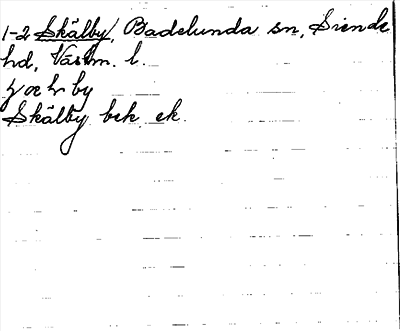 1-2 Skälby, Badelunda sn, Siende
hd, Västm. l.
by
Skälby bek. ek.